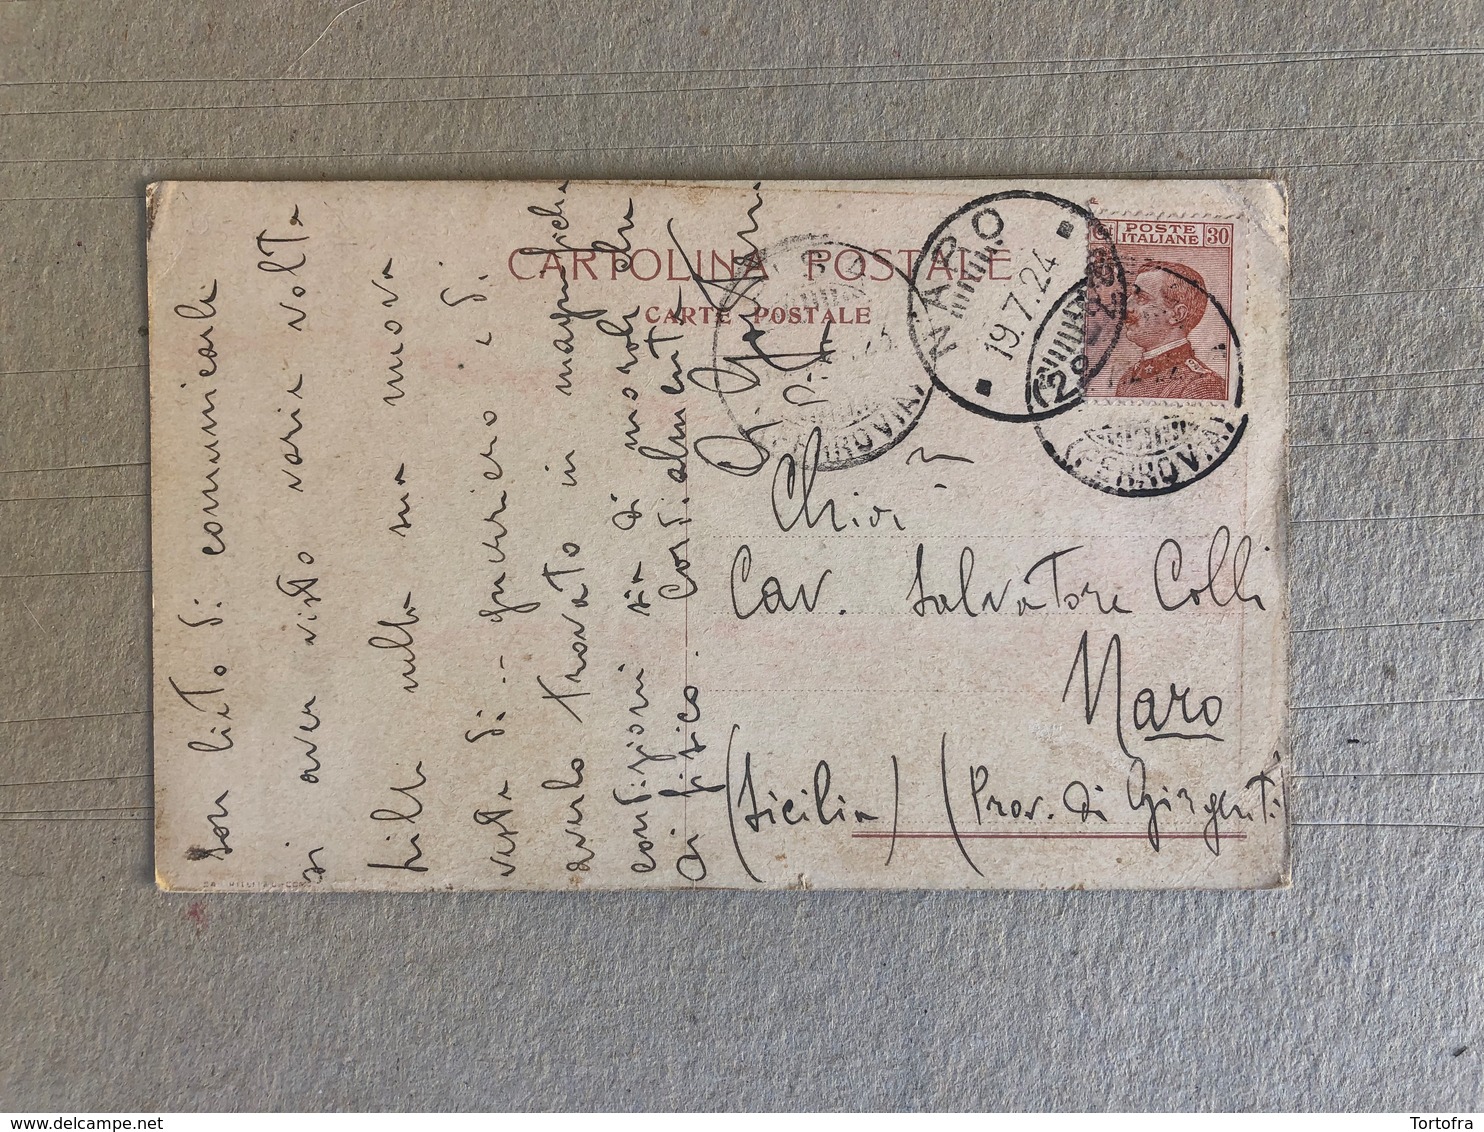 CARTOLINA POSTALE
CARTE POSTALE
POSTE
ITALIANE 30
NARO
19.7.24
(FERROVIA)
(FERROVIA)
Chiar
Cav. Salvatore Colli
Naro
(Sicilia) (Prov. di Girgenti)
Son lieto di comunicarle
di aver visto varie volte
nella sua nuova
veste di guerriero e di
averlo trovato in magnifiche
condizioni sia di morale che
di fisico. Cordialmente
Tortofra